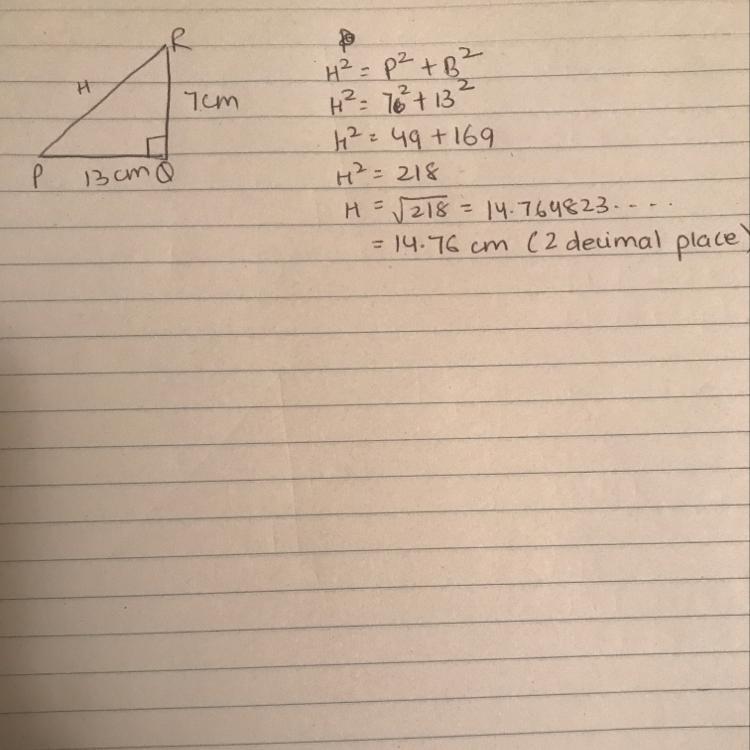 R
H
7cm
P 13cm Q
H² = P² + B²
H² = 7² + 13²
H² = 49 + 169
H² = 218
H = √218 = 14.764823....
= 14.76 cm (2 decimal place)